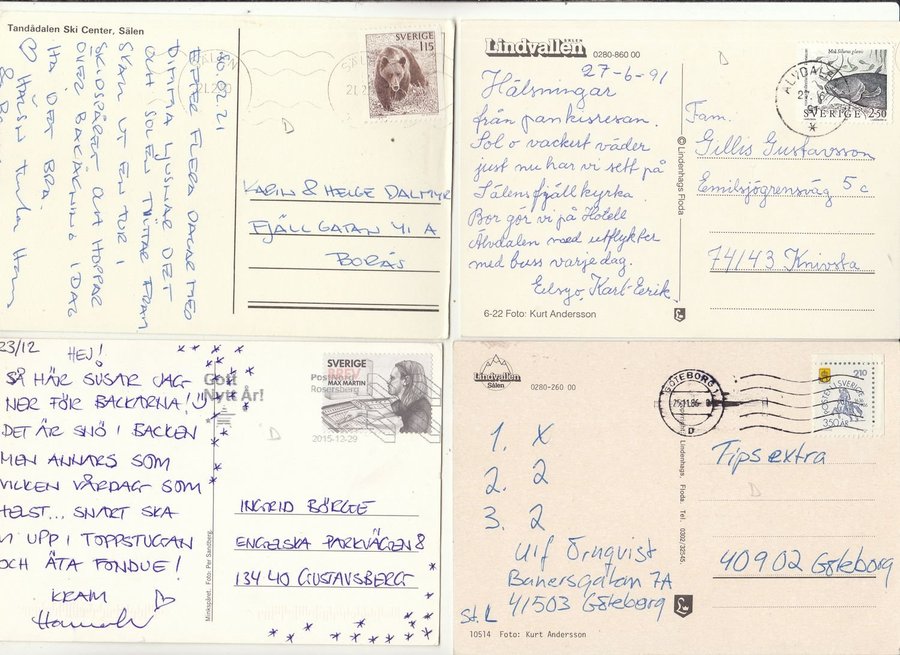 Tandådalen Ski Center, Sälen
SVERIGE
115
80.02.21
EFTER FLERA DAGAR MED
DIMMA LJUSNAR DET
OCH SOLEN TITTAR FRAM
SKALL UT EN TUR I
SKIDSPÅRET OCH HOPPAR
ÖVER BACKÅKNING IDAG
HA DET BRA.
KARIN & HELGE DALMYR
FJÄLLGATAN 41 A
BORÅS
Lindvallen
SÄLEN
0280-860 00
27-6-91
Hälsningar
från pankisresan.
Sol o vackert väder
just nu har vi sett på
Sälensfjällkyrka.
Bor gör vi på Hotell
Älvdalen med utflykter
med buss varje dag.
Karl-Eerik.
6-22 Foto: Kurt Andersson
© Lindenhags Floda
Mal Silurus glanis
SVERIGE 2·50
ÄLVDALEN
Fam.
Gillis Gustavsson
Emilsjögrensväg 5 c
74143 Knivsta
23/12
HEJ!
SÅ HÄR SUSAR JAG
NER FÖR BACKARNA!
DET ÄR SNÖ I BACKEN
MEN ANNARS SOM
VILKEN VÅRDAG SOM
HELST... SNART SKA
VI UPP I TOPPSTUGAN
OCH ÄTA FONDUE!
KRAM
Gott
Nytt År!
PostNord
Rosersberg
2015-12-29
SVERIGE
BREV
MAX MARTIN
Minikspåret. Foto: Per Sandberg.
INGRID BÖRGE
ENGELSKA PARKVÄGEN 8
134 40 GUSTAVSBERG
Lindvallen
Sälen
0280-260 00
1. X
2. 2
3. 2
Ulf Örnqvist
Banersgatan 7A
41503 Göteborg
St. L
10514 Foto: Kurt Andersson
Lindenhags, Floda. Tel. 0302/32545.
GÖTEBORG 1
25.11.86
210
POSTEN I SVERIGE
350 ÅR
Tipsextra
40902 Göteborg